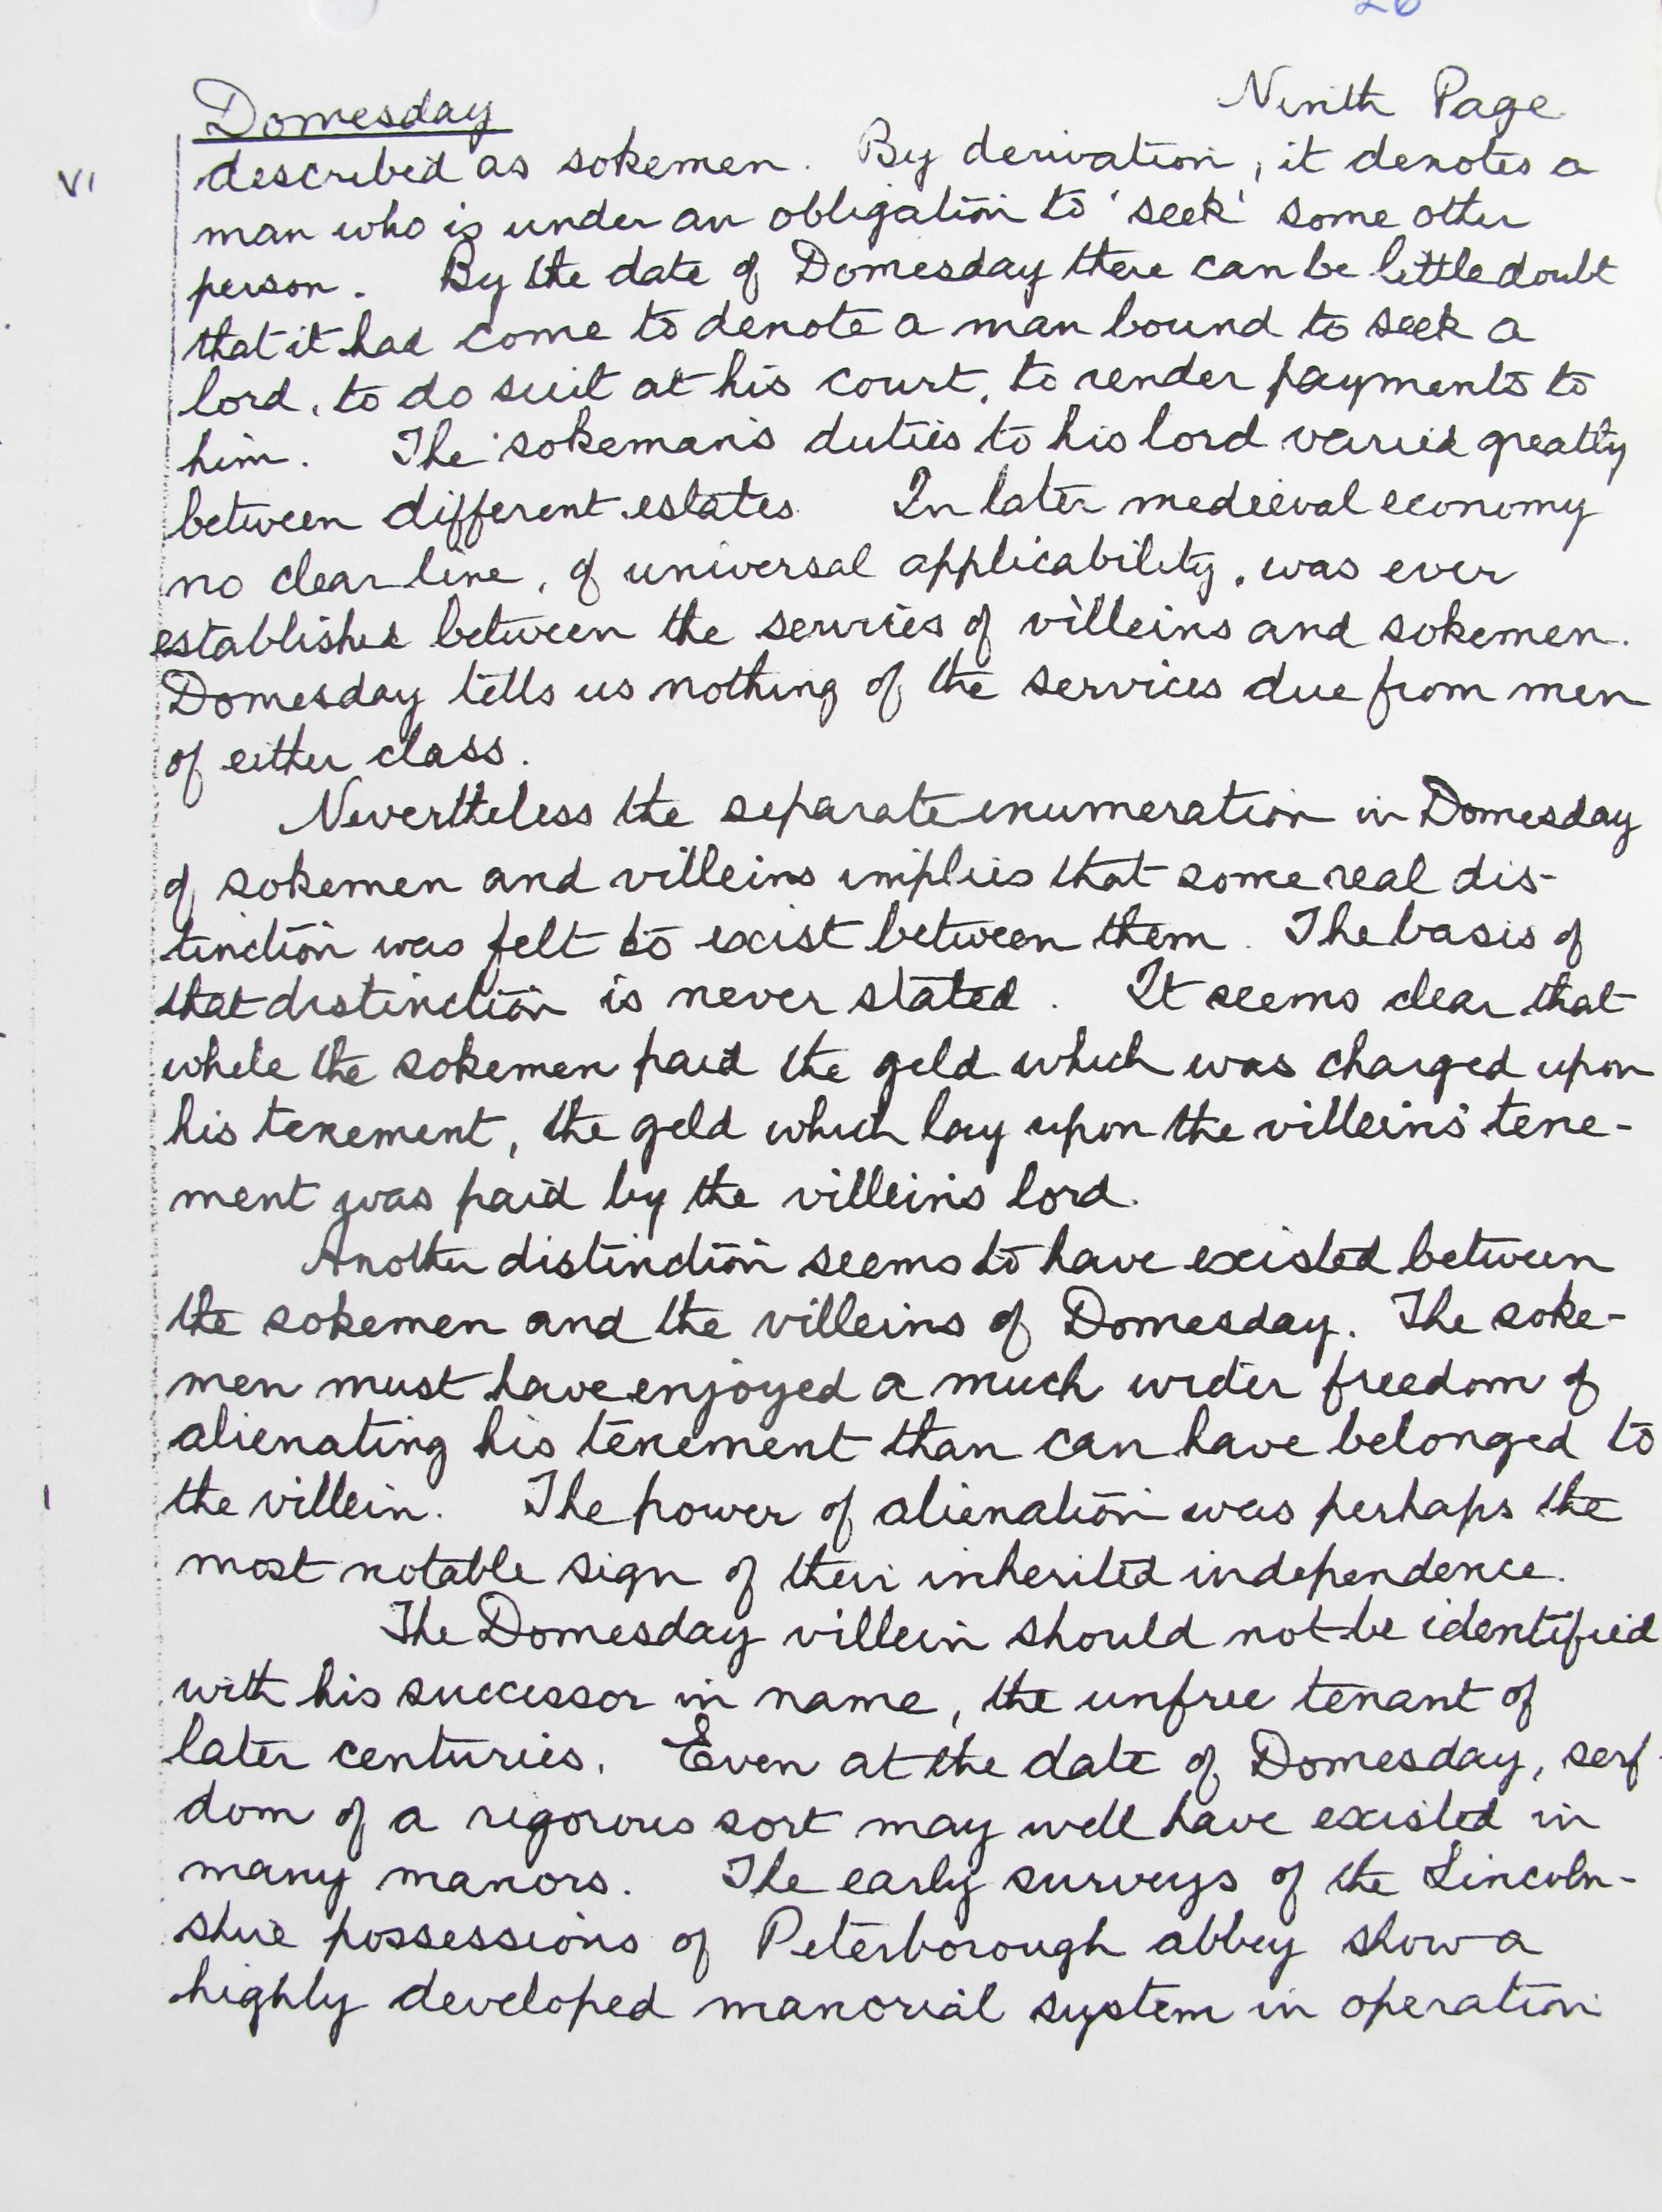 26
Domesday Ninth Page
VI
described as sokemen. By derivation, it denotes a
man who is under an obligation to 'seek' some other
person. By the date of Domesday there can be little doubt
that it had come to denote a man bound to seek a
lord, to do suit at his court, to render payments to
him. The sokeman's duties to his lord varied greatly
between different estates. In later medieval economy
no clear line, of universal applicability, was ever
established between the services of villeins and sokemen.
Domesday tells us nothing of the services due from men
of either class.
Nevertheless the separate enumeration in Domesday
of sokemen and villeins implies that some real dis-
tinction was felt to exist between them. The basis of
that distinction is never stated. It seems clear that
while the sokemen paid the geld which was charged upon
his tenement, the geld which lay upon the villeins' tene-
ment was paid by the villein's lord.
Another distinction seems to have existed between
the sokemen and the villeins of Domesday. The soke-
men must have enjoyed a much wider freedom of
alienating his tenement than can have belonged to
the villein. The power of alienation was perhaps the
most notable sign of their inherited independence.
The Domesday villein should not be identified
with his successor in name, the unfree tenant of
later centuries. Even at the date of Domesday, serf-
dom of a rigorous sort may well have existed in
many manors. The early surveys of the Lincoln-
shire possessions of Peterborough abbey show a
highly developed manorial system in operation